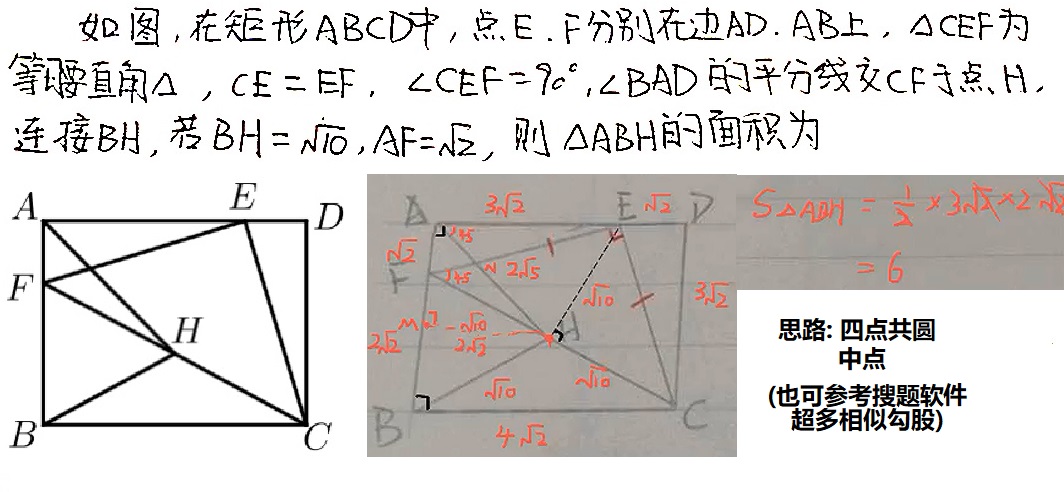 如图,在矩形ABCD中,点E.F分别在边AD.AB上,△CEF为
等腰直角△,CE=EF,∠CEF=90°,∠BAD的平分线交CF于点H,
连接BH,若BH=√10,AF=√2,则△ABH的面积为
A
E
D
F
H
B
C
A
3√2
E
√2
D
√2
45
F
45
N
2√5
√10
3√2
M
√10
2√2
2√2
H
√10
√10
B
4√2
C
S△ABH = 1/2 ×3√2×2√2
=6
思路: 四点共圆
中点
(也可参考搜题软件
超多相似勾股)